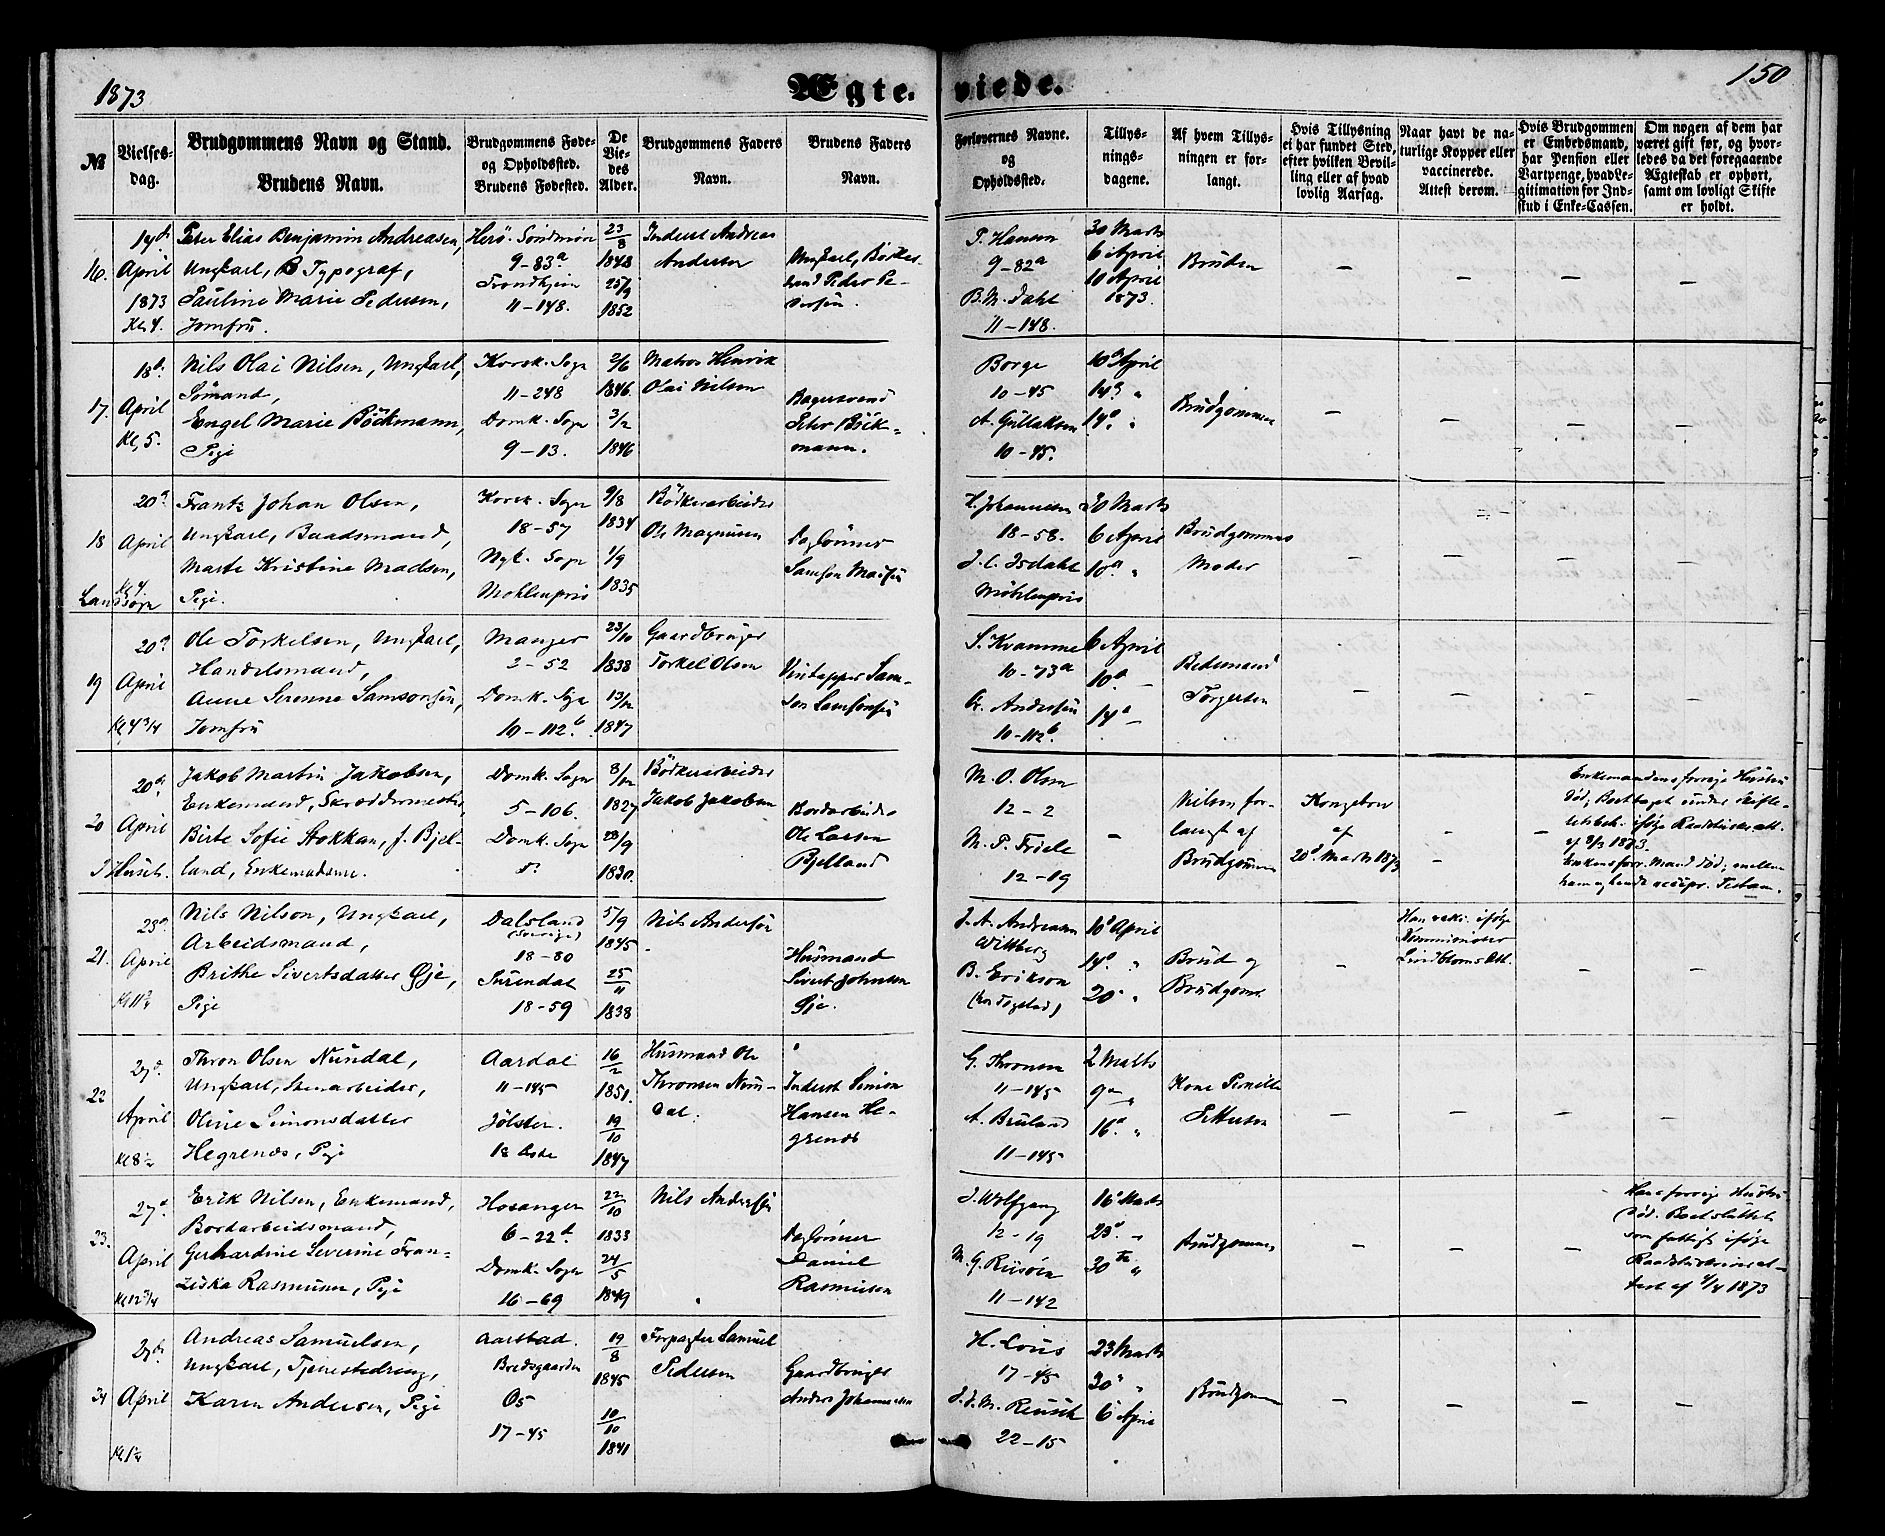 1873
Ægte-
viede.
150
№
Vielses-
dag.
Brudgommens Navn og Stand.
Brudens Navn.
Brudgommens Føde-
og Opholdssted.
Brudens Fødested.
De
Vie-
des
Alder.
Brudgommens Faders
Navn.
Brudens Faders
Navn.
Forlovernes Navne.
og
Opholdssted.
Tillys-
nings-
dagene.
Af hvem Tillys-
ningen er for-
langt.
Hvis Tillysning
ei har fundet Sted,
efter hvilken Bevil-
ling eller af hvad
lovlig Aarsag.
Naar havt de na-
turlige Kopper eller
vaccinerede.
Attest derom.
Hvis Brudgommen
er Embedsmand,
har Pension eller
Vartpenge, hvad Le-
gitimation for Ind-
skud i Enke-Cassen.
Om nogen af dem har
været gift før, og hvor-
ledes da det foregaaende
Ægteskab er ophørt,
samt om lovligt Skifte
er holdt.
16.
14de
April
1873
Kl 4.
Peter Elias Benjamin Andreasen,
Ungkarl, Typograf,
Pauline Marie Pedersen,
Jomfru.
Herø. Søndmøre
9-83a
Trondhjem
11-148.
23/8
1848
25/9
1852
Inderst Andreas
Andersen
Ungkarl, Bødker-
svend Peder Pe-
dersen.
P. Hansen
9-82a
B. M. Dahl
11-148.
30 Marts
6 April
10 April
1873.
Bruden
17.
18d.
April
Kl, 5.
Nils Olai Nilsen, Ungkarl,
Sømand,
Engel Marie Böckmann,
Pige
Korsk. Sogn
11-248
Domk. Sogn
9-13.
2/6
1846.
3/2
1846
Matros Henrik
Olai Nilsen
Bagersvend
Peter Böck-
mann.
Borge
10-45
A. Gullaksen
10-45.
10d April
14d "
Brudgommen
18
20d
April
Kl 4
Landsogn
Frantz Johan Olsen,
Ungkarl, Baadsmand,
Marte Kristine Madsen,
Pige.
Korsk. Sogn
18-57
Nyk. Sogn
Møhlenpris
9/8
1834
1/9
1835
Bødkerarbeider
Ole Magnusen
Daglønner
Samson Madsen
H. Johannesen
18-58.
J. C. Isdahl
Møhlenpris
30 Marts
6 April
10d "
Brudgommens
Moder
19
20d
April
Kl 4 3/4
Ole Torkelsen, Ungkarl,
Handelsmand,
Anne Serenne Samsonsen,
Jomfru
Manger
2-52
Domk. Sogn
10-112b.
23/10
1838
13/12
1847
Gaardbruger
Torkel Olsen
Vintapper Sam-
son Samsonsen
S. Kvamme
10-73a
A. Andersen
10-112b.
6 April
10d
14d
Bedemand
Torgersen
20
20de
April
I Huset.
Jakob Martin Jakobsen,
Enkemand, Skræddermester,
Birte Sofie Stokkan, f. Bjel-
land, Enkemadame.
Domk. Sogn
5-106.
Domk. Sogn
8/12
1827
23/9
1830.
Bødkerarbeider
Jakob Jakobsen
Bordarbeider
Ole Larsen
Bjelland
M. O. Olsen
12-2
M. P. Friele
12-19
Vielsen for-
langt af
Brudgommen
Kongebrev
af
20d Marts 1873
Enkemandens forrige Hustru
død, Boet taget under Skifte-
rets beh. ifølge Raadstueatt.
1873.
Enkens forr. Mand død, mellem
21.
25d
April
Kl 11½
Nils Nilson, Ungkarl,
Arbeidsmand,
Brithe Sivertsdatter Øje,
Pige
Dalsland
(Sverige)
18-80
Surendal
18-59
5/9
1845
25/11
1838
Nils Andersen
Husmand
Sivert Johnsen
Øje.
J. A. Andreasen
Wittberg
B. Erikson
10d April
14d "
20 "
Brud og
Brudgom.
Han vakc. ifølge
Lindbloms Att.
22
27d.
April
Kl 8½
Thron Olsen Nundal,
Ungkarl, Stenarbeider,
Oline Simonsdatter
Hegrenes, Pige
Aardal
11-145
Jølster.
16/2
1851.
19/10
1847
Husmand Ole
Thronsen Nun-
dal.
Inderst Simon
Hansen He-
grenes
G. Thronsen
11-145
A. Bruland
11-145
2 Marts
9 "
16d "
Kone Pernille
23.
27d
April
Kl 12 3/4
Erik Nilsen, Enkemand,
Bordarbeidsmand,
Gerhardine Severine Fran-
ziska Rasmusen, Pige
Hosanger
6-22b.
Domk. Sogn
16-69
22/10
1833
24/5
1849
Nils Andersen
Daglønner
Daniel
Rasmusen
J. Wolfgang
12-19
M. G. Riisøen
11-142
16d Marts
23d "
30te "
Brudgommen
Hans forrige Hustru
død. Boet sluttet
som fattigt ifølge
Raadstueskriverat-
test af 4/4 1873
24
27de
April
Kl 1½
Andreas Samuelsen,
Ungkarl, Tjenestedreng,
Karen Andersen, Pige
Aarstad.
Bredsgaarden
Os
17-45
19/8
1845
10/10
1841
Forpagter Samuel
Pedersen
Gaardbruger
Anders Johannessen
H. Louis
17-45
J. J. M. Reusch
22-15
23 Marts
30 "
6 April
Brudgommen